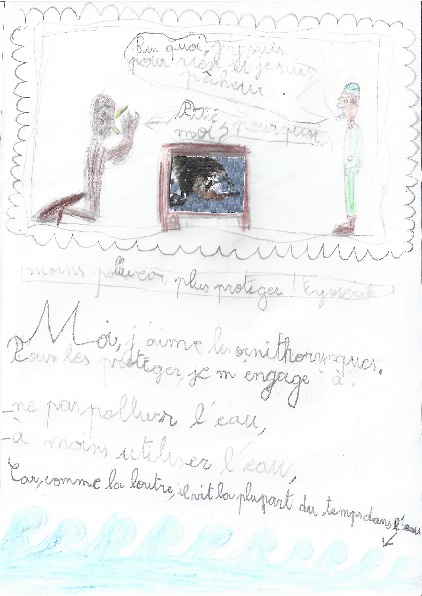 Ben quoi, j'y suis
pour rien si je suis
pêcheur.
Pitié, pourquoi
moi ?
moins polluer plus protéger !
Moi, j'aime les ornithorynques.
Pour les protéger, je m'engage à :
-ne pas polluer l'eau,
-à moins utiliser l'eau,
Car, comme la loutre, il vit la plupart du temps dans l'eau